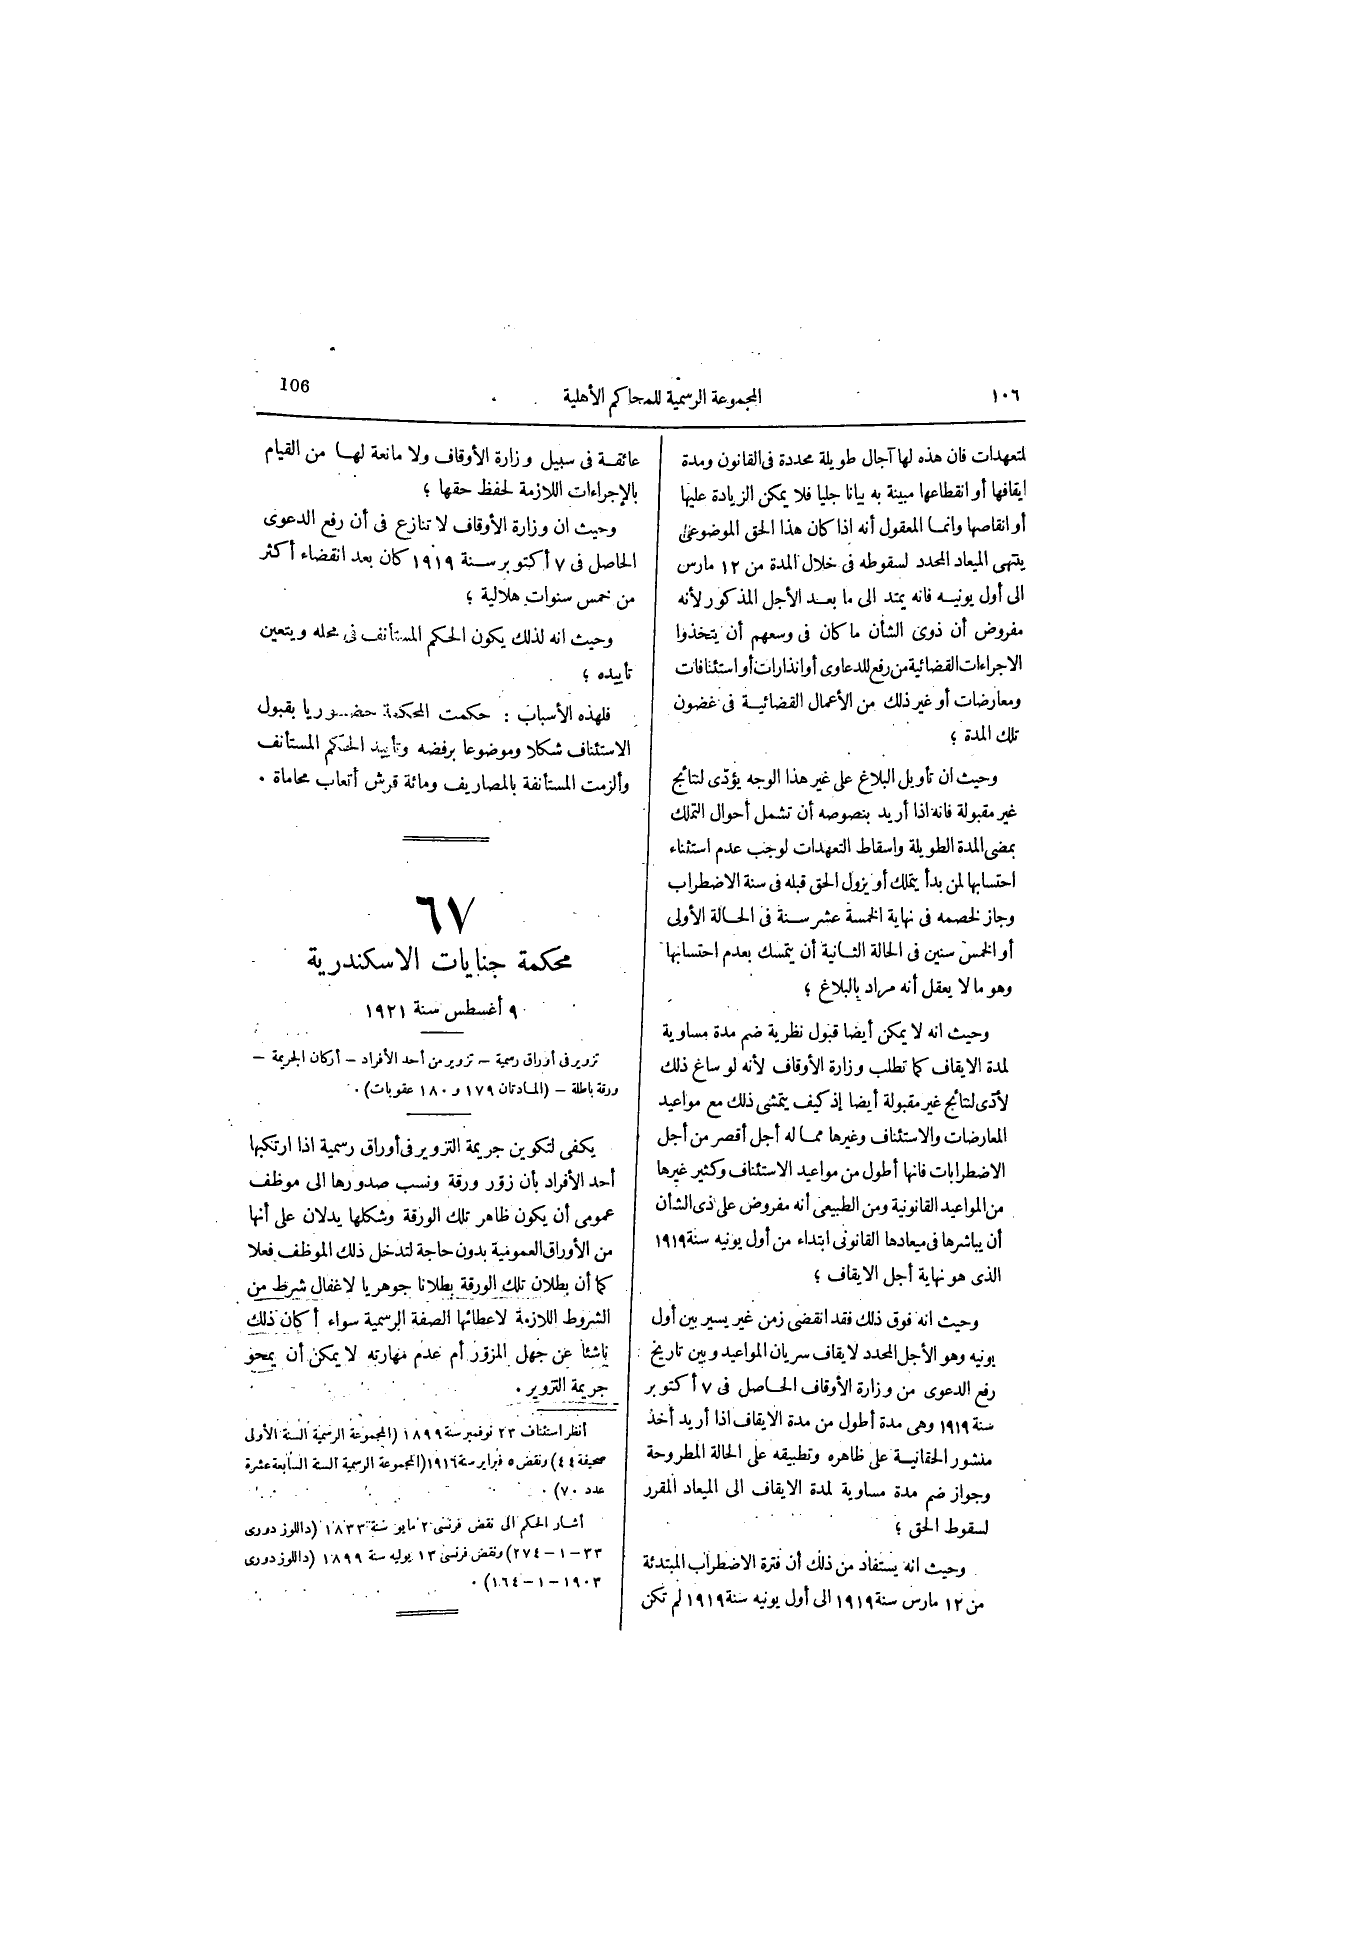 ١٠٦
المجموعة الرسمية للمحاكم الأهلية
106
لمتعهدات فان هذه لها آجال طويلة محددة فى القانون ومدة
ايقافها أو انقطاعها مبينة به بيانا جليا فلا يمكن الزيادة عليها
أو انقاصها وانما المعقول أنه اذا كان هذا الحق الموضوعى
ينتهى الميعاد المحدد لسقوطه فى خلال المدة من ١٢ مارس
الى أول يونيه فانه يمتد الى ما بعد الأجل المذكور لأنه
مفروض أن ذوى الشأن ما كان فى وسعهم أن يتخذوا
الاجراءات القضائية من رفع للدعاوى أو انذارات أو استئنافات
ومعارضات أو غير ذلك من الأعمال القضائية فى غضون
تلك المدة ؛
وحيث ان تأويل البلاغ على غير هذا الوجه يؤدّى لنتائج
غير مقبولة فانه اذا أريد بنصوصه أن تشمل أحوال التملك
بمضى المدة الطويلة واسقاط التعهدات لوجب عدم استثناء
احتسابها لمن بدأ يتملك أو يزول الحق قبله فى سنة الاضطراب
وجاز لخصمه فى نهاية الخمسة عشر سنة فى الحالة الأولى
أو الخمس سنين فى الحالة الثانية أن يتمسك بعدم احتسابها
وهو ما لا يعقل أنه مراد بالبلاغ ؛
وحيث انه لا يمكن أيضا قبول نظرية ضم مدة مساوية
لمدة الايقاف كما تطلب وزارة الأوقاف لأنه لو ساغ ذلك
لأدّى لنتائج غير مقبولة أيضا إذ كيف يتمشى ذلك مع مواعيد
المعارضات والاستئناف وغيرها مما له أجل أقصر من أجل
الاضطرابات فانها أطول من مواعيد الاستئناف وكثير غيرها
من المواعيد القانونية ومن الطبيعى أنه مفروض على ذى الشأن
أن يباشرها فى ميعادها القانونى ابتداء من أول يونيه سنة ١٩١٩
الذى هو نهاية أجل الايقاف ؛
وحيث انه فوق ذلك فقد انقضى زمن غير يسير بين أول
يونيه وهو الأجل المحدد لايقاف سريان المواعيد وبين تاريخ
رفع الدعوى من وزارة الأوقاف الحاصل فى ٧ أكتوبر
سنة ١٩١٩ وهى مدة أطول من مدة الايقاف اذا أريد أخذ
منشور الحقانية على ظاهره وتطبيقه على الحالة المطروحة
وجواز ضم مدة مساوية لمدة الايقاف الى الميعاد المقرر
لسقوط الحق ؛
وحيث انه يستفاد من ذلك أن فترة الاضطراب المبتدئة
من ١٢ مارس سنة ١٩١٩ الى أول يونيه سنة ١٩١٩ لم تكن
عائقة فى سبيل وزارة الأوقاف ولا مانعة لها من القيام
بالإجراءات اللازمة لحفظ حقها ؛
وحيث ان وزارة الأوقاف لا تنازع فى أن رفع الدعوى
الحاصل فى ٧ أكتوبر سنة ١٩١٩ كان بعد انقضاء أكثر
من خمس سنوات هلالية ؛
وحيث انه لذلك يكون الحكم المستأنف فى محله ويتعين
تأييده ؛
فلهذه الأسباب : حكمت المحكمة حضوريا بقبول
الاستئناف شكلا وموضوعا برفضه وتأييد الحكم المستأنف
وألزمت المستأنفة بالمصاريف ومائة قرش أتعاب محاماة .
٦٧
محكمة جنايات الاسكندرية
٩ أغسطس سنة ١٩٢١
تزوير فى أوراق رسمية – تزوير من أحد الأفراد – أركان الجريمة –
ورقة باطلة – (المادتان ١٧٩ و ١٨٠ عقوبات) .
يكفى لتكوين جريمة التزوير فى أوراق رسمية اذا ارتكبها
أحد الأفراد بأن زوّر ورقة ونسب صدورها الى موظف
عمومى أن يكون ظاهر تلك الورقة وشكلها يدلان على أنها
من الأوراق العمومية بدون حاجة لتدخل ذلك الموظف فعلا
كما أن بطلان تلك الورقة بطلانا جوهريا لاغفال شرط من
الشروط اللازمة لاعطائها الصفة الرسمية سواء أكان ذلك
ناشئا عن جهل المزوّر أم عدم مهارته لا يمكن أن يمحو
جريمة التزوير .
أنظر استئناف ٢٣ نوفمبر سنة ١٨٩٩ (المجموعة الرسمية السنة الأولى
صحيفة ٤٤) ونقض ٥ فبراير سنة ١٩١٦ (المجموعة الرسمية السنة السابعة عشرة
عدد ٧٠) .
أشار الحكم الى نقض فرنسى ٢ مايو سنة ١٨٣٣ (داللوز دورى
٣٣-١-٢٧٤) ونقض فرنسى ١٣ يوليه سنة ١٨٩٩ (داللوز دورى
١٩٠٣-١-١٦٤) .